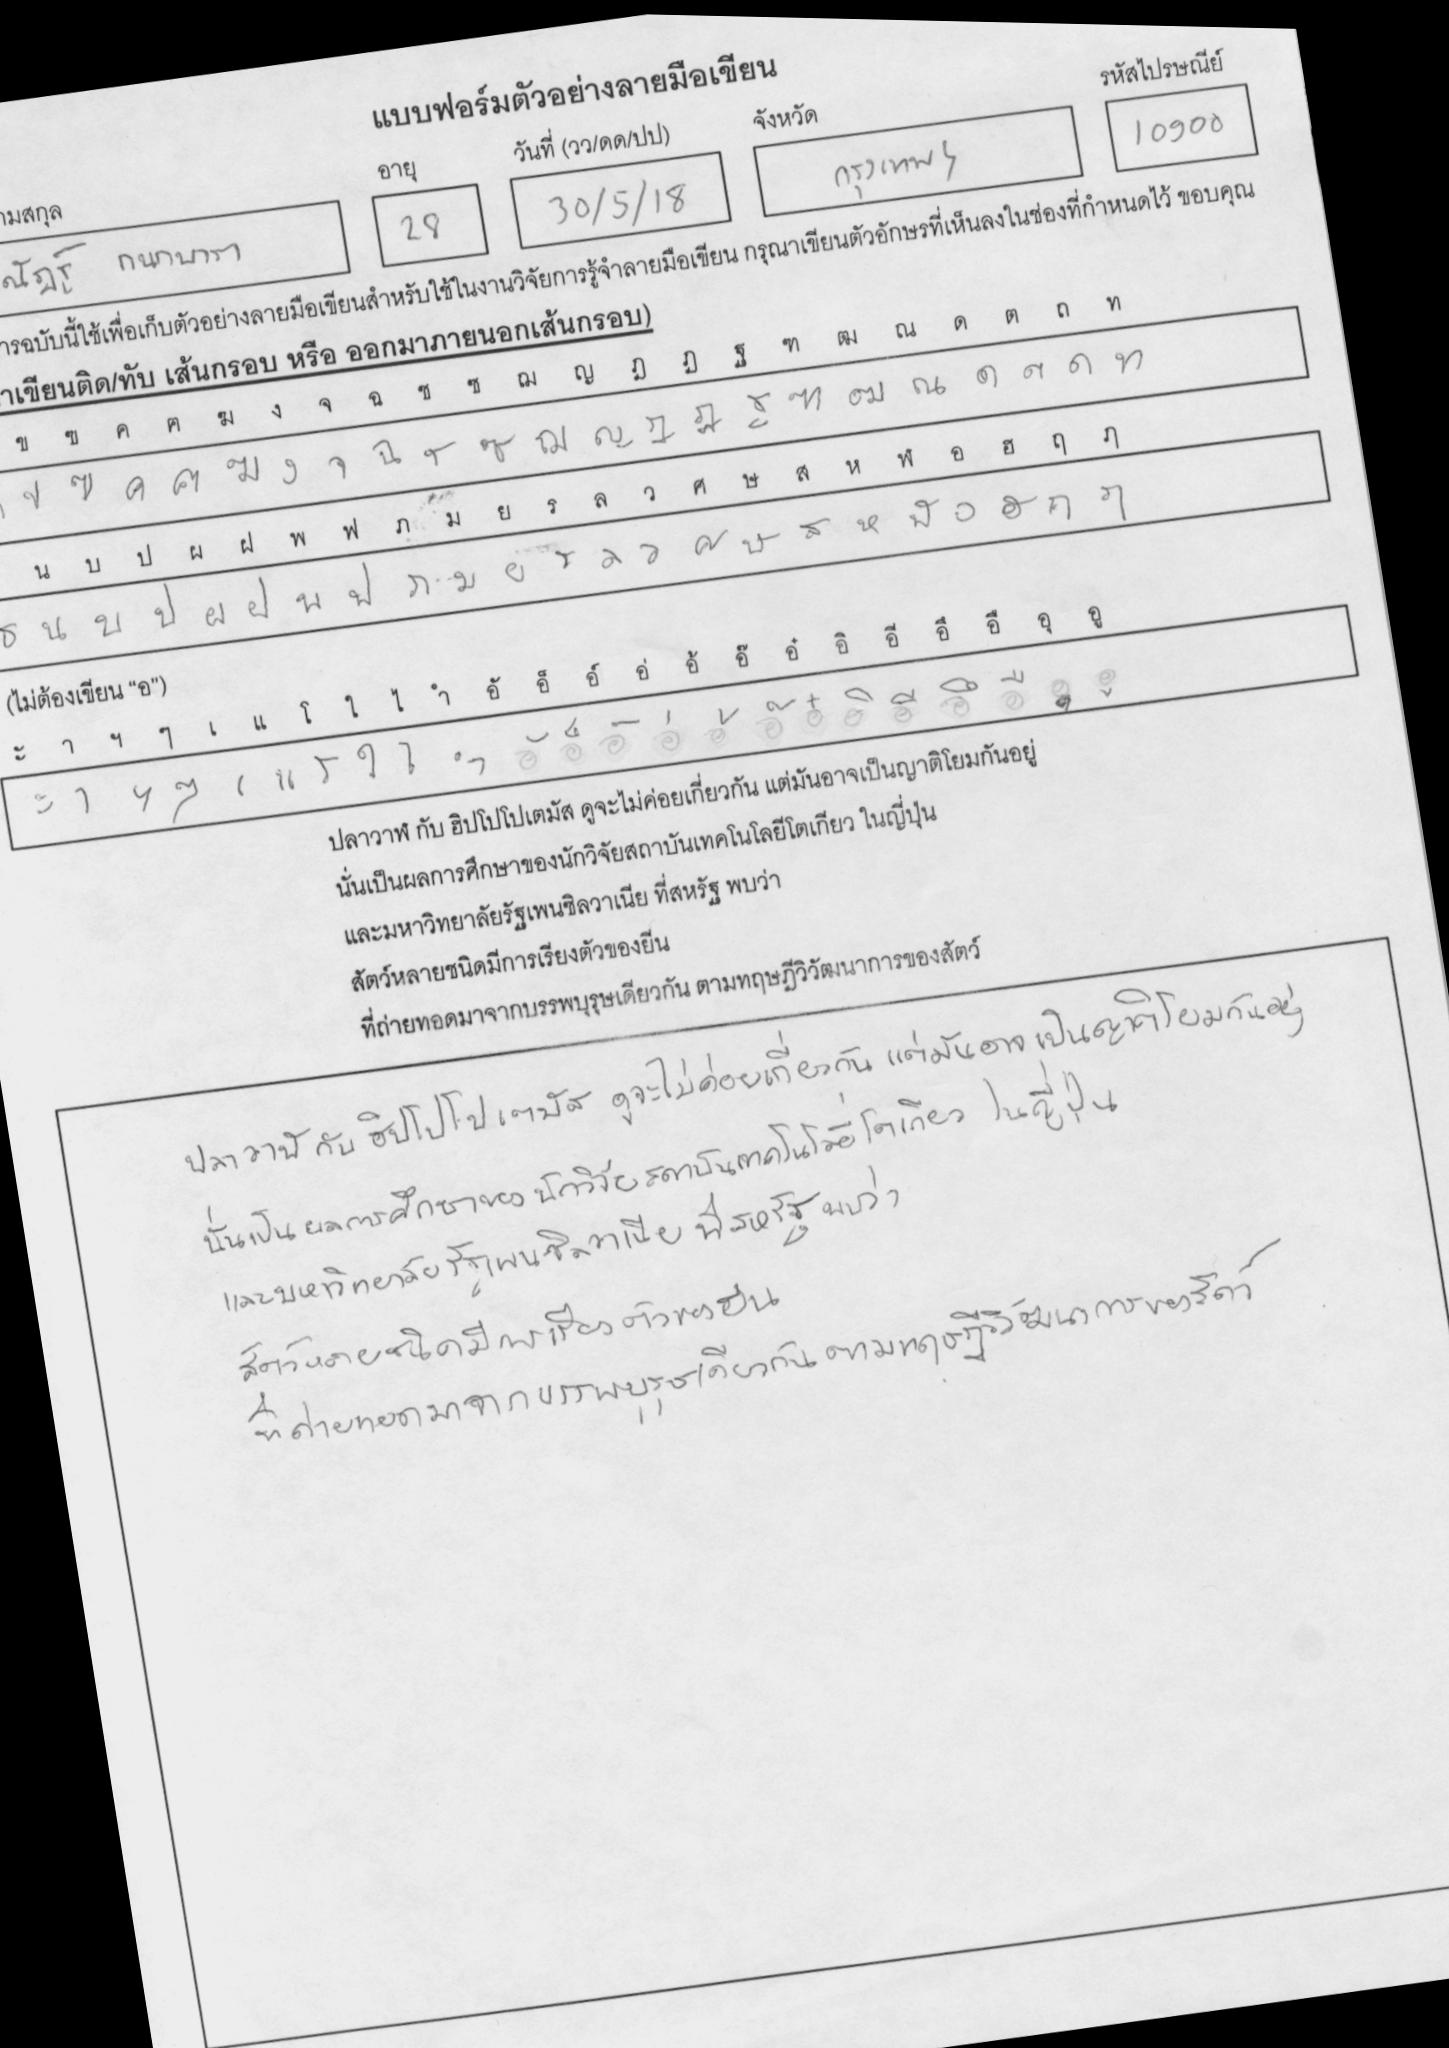 แบบฟอร์มตัวอย่างลายมือเขียน
อายุ วันที่ (วว/ดด/ปป) จังหวัด รหัสไปรษณีย์
28 30/5/18 กรุงเทพฯ 10900
ารฉบับนี้ใช้เพื่อเก็บตัวอย่างลายมือเขียนสำหรับใช้ในงานวิจัยการรู้จำลายมือเขียน กรุณาเขียนตัวอักษรที่เห็นลงในช่องที่กำหนดไว้ ขอบคุณ
าเขียนติด/ทับ เส้นกรอบ หรือ ออกมาภายนอกเส้นกรอบ)
ข ฃ ค ฅ ฆ ง จ ฉ ช ซ ฌ ญ ฎ ฏ ฐ ฑ ฒ ณ ด ต ถ ท
ข ฃ ค ฅ ฆ ง จ ฉ ช ซ ฌ ญ ฎ ฏ ฐ ฑ ฒ ณ ด ต ถ ท
น บ ป ผ ฝ พ ฟ ภ ม ย ร ล ว ศ ษ ส ห ฬ อ ฮ ฤ ฦ
ธ น บ ป ผ ฝ พ ฟ ภ ม ย ร ล ว ศ ษ ส ห ฬ อ ฮ ฤ ฦ
(ไม่ต้องเขียน “อ”)
ะ า ฯ ๆ เ แ โ ใ ไ ำ อั อ็ อ์ อ่ อ้ อ๊ อ๋ อิ อี อึ อื อุ อู
ะ า ฯ ๆ เ แ โ ใ ไ ำ อั อ็ อ์ อ่ อ้ อ๊ อ๋ อิ อี อึ อื อุ อู
ปลาวาฬ กับ ฮิปโปโปเตมัส ดูจะไม่ค่อยเกี่ยวกัน แต่มันอาจเป็นญาติโยมกันอยู่
นั่นเป็นผลการศึกษาของนักวิจัยสถาบันเทคโนโลยีโตเกียว ในญี่ปุ่น
และมหาวิทยาลัยรัฐเพนซิลวาเนีย ที่สหรัฐ พบว่า
สัตว์หลายชนิดมีการเรียงตัวของยีน
ที่ถ่ายทอดมาจากบรรพบุรุษเดียวกัน ตามทฤษฎีวิวัฒนาการของสัตว์
ปลาวาฬ กับ ฮิปโปโปเตมัส ดูจะไม่ค่อยเกี่ยวกัน แต่มันอาจเป็นญาติโยมกันอยู่
นั่นเป็นผลการศึกษาของนักวิจัยสถาบันเทคโนโลยีโตเกียว ในญี่ปุ่น
และมหาวิทยาลัยรัฐเพนซิลวาเนีย ที่สหรัฐ พบว่า
สัตว์หลายชนิดมีการเรียงตัวของยีน
ที่ถ่ายทอดมาจากบรรพบุรุษเดียวกัน ตามทฤษฎีวิวัฒนาการของสัตว์